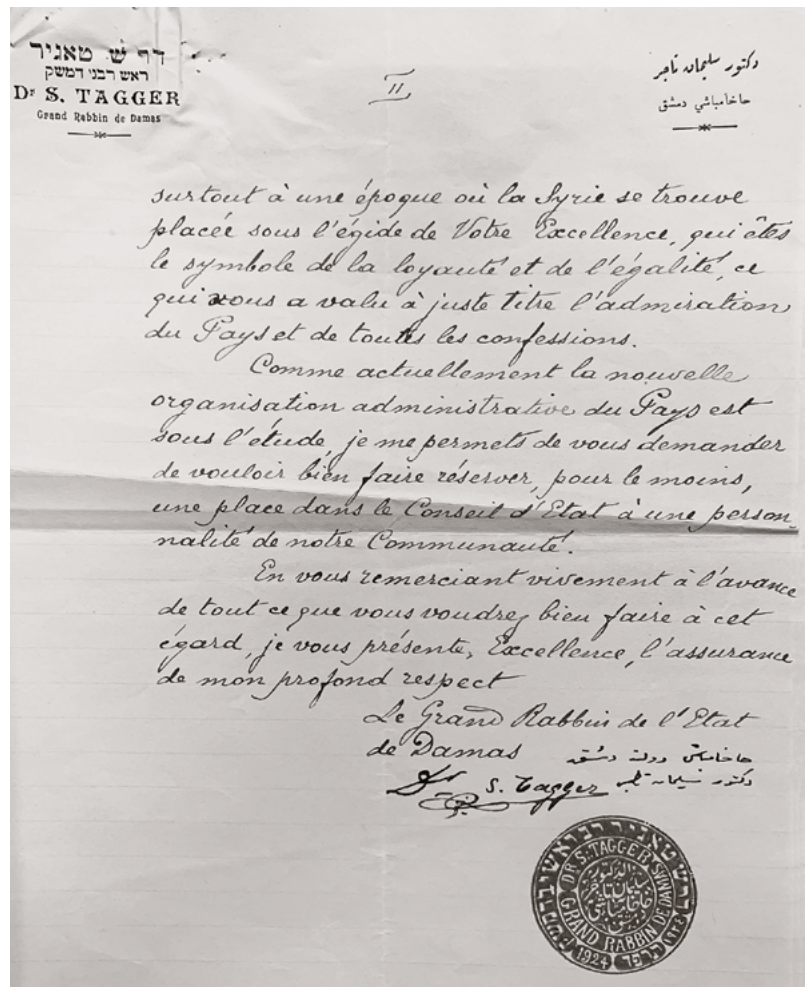 דר ש. טאגיר
ראש רבני דמשק
Dr S. TAGGER
Grand Rabbin de Damas
II
دكتور سليمان تاجر
حاخامباشي دمشق
surtout à une époque où la Syrie se trouve
placée sous l'égide de Votre Excellence, qui êtes
le symbole de la loyauté et de l'égalité, ce
qui vous a valu à juste titre l'admiration
du Pays et de toutes les confessions.
Comme actuellement la nouvelle
organisation administrative du Pays est
sous l'étude, je me permets de vous demander
de vouloir bien faire réserver, pour le moins,
une place dans le Conseil d'Etat à une person-
nalité de notre Communauté.
En vous remerciant vivement à l'avance
de tout ce que vous voudrez bien faire à cet
égard, je vous présente, Excellence, l'assurance
de mon profond respect
Le Grand Rabbin de l'Etat
de Damas
حاخامباشي دولة دمشق
دكتور سليمان تاجر
Dr S. Tagger
DR S. TAGGER
GRAND RABBIN DE DAMAS
1924